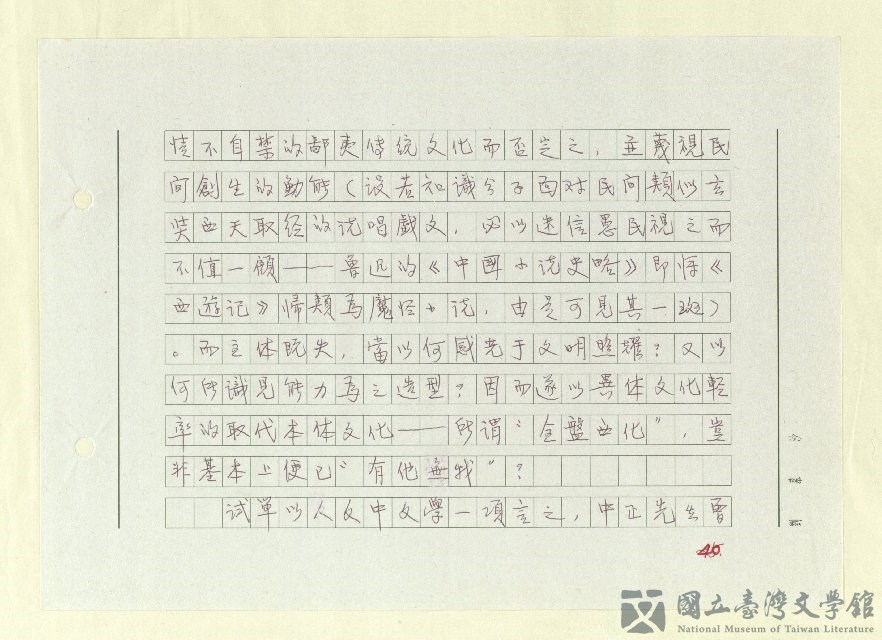 情不自禁的鄙夷傳統文化而否定之，並蔑視民
间創生的動能（设若知識分子面对民间類似玄
奘西天取经的说唱戲文，必以迷信愚民視之而
不值一顧——魯迅的《中國小说史略》即将《
西遊记》歸類為魔怪小说，由是可見其一斑）
。而主体既失，當以何感光于文明照耀？又以
何所識見能力為之造型？因而遂以異体文化輕
率的取代本体文化——所謂“全盤西化”，豈
非基本上便已“有他無我”？
試單以人文中文學一項言之，中正先生曾
45.
國立臺灣文學館
National Museum of Taiwan Literature